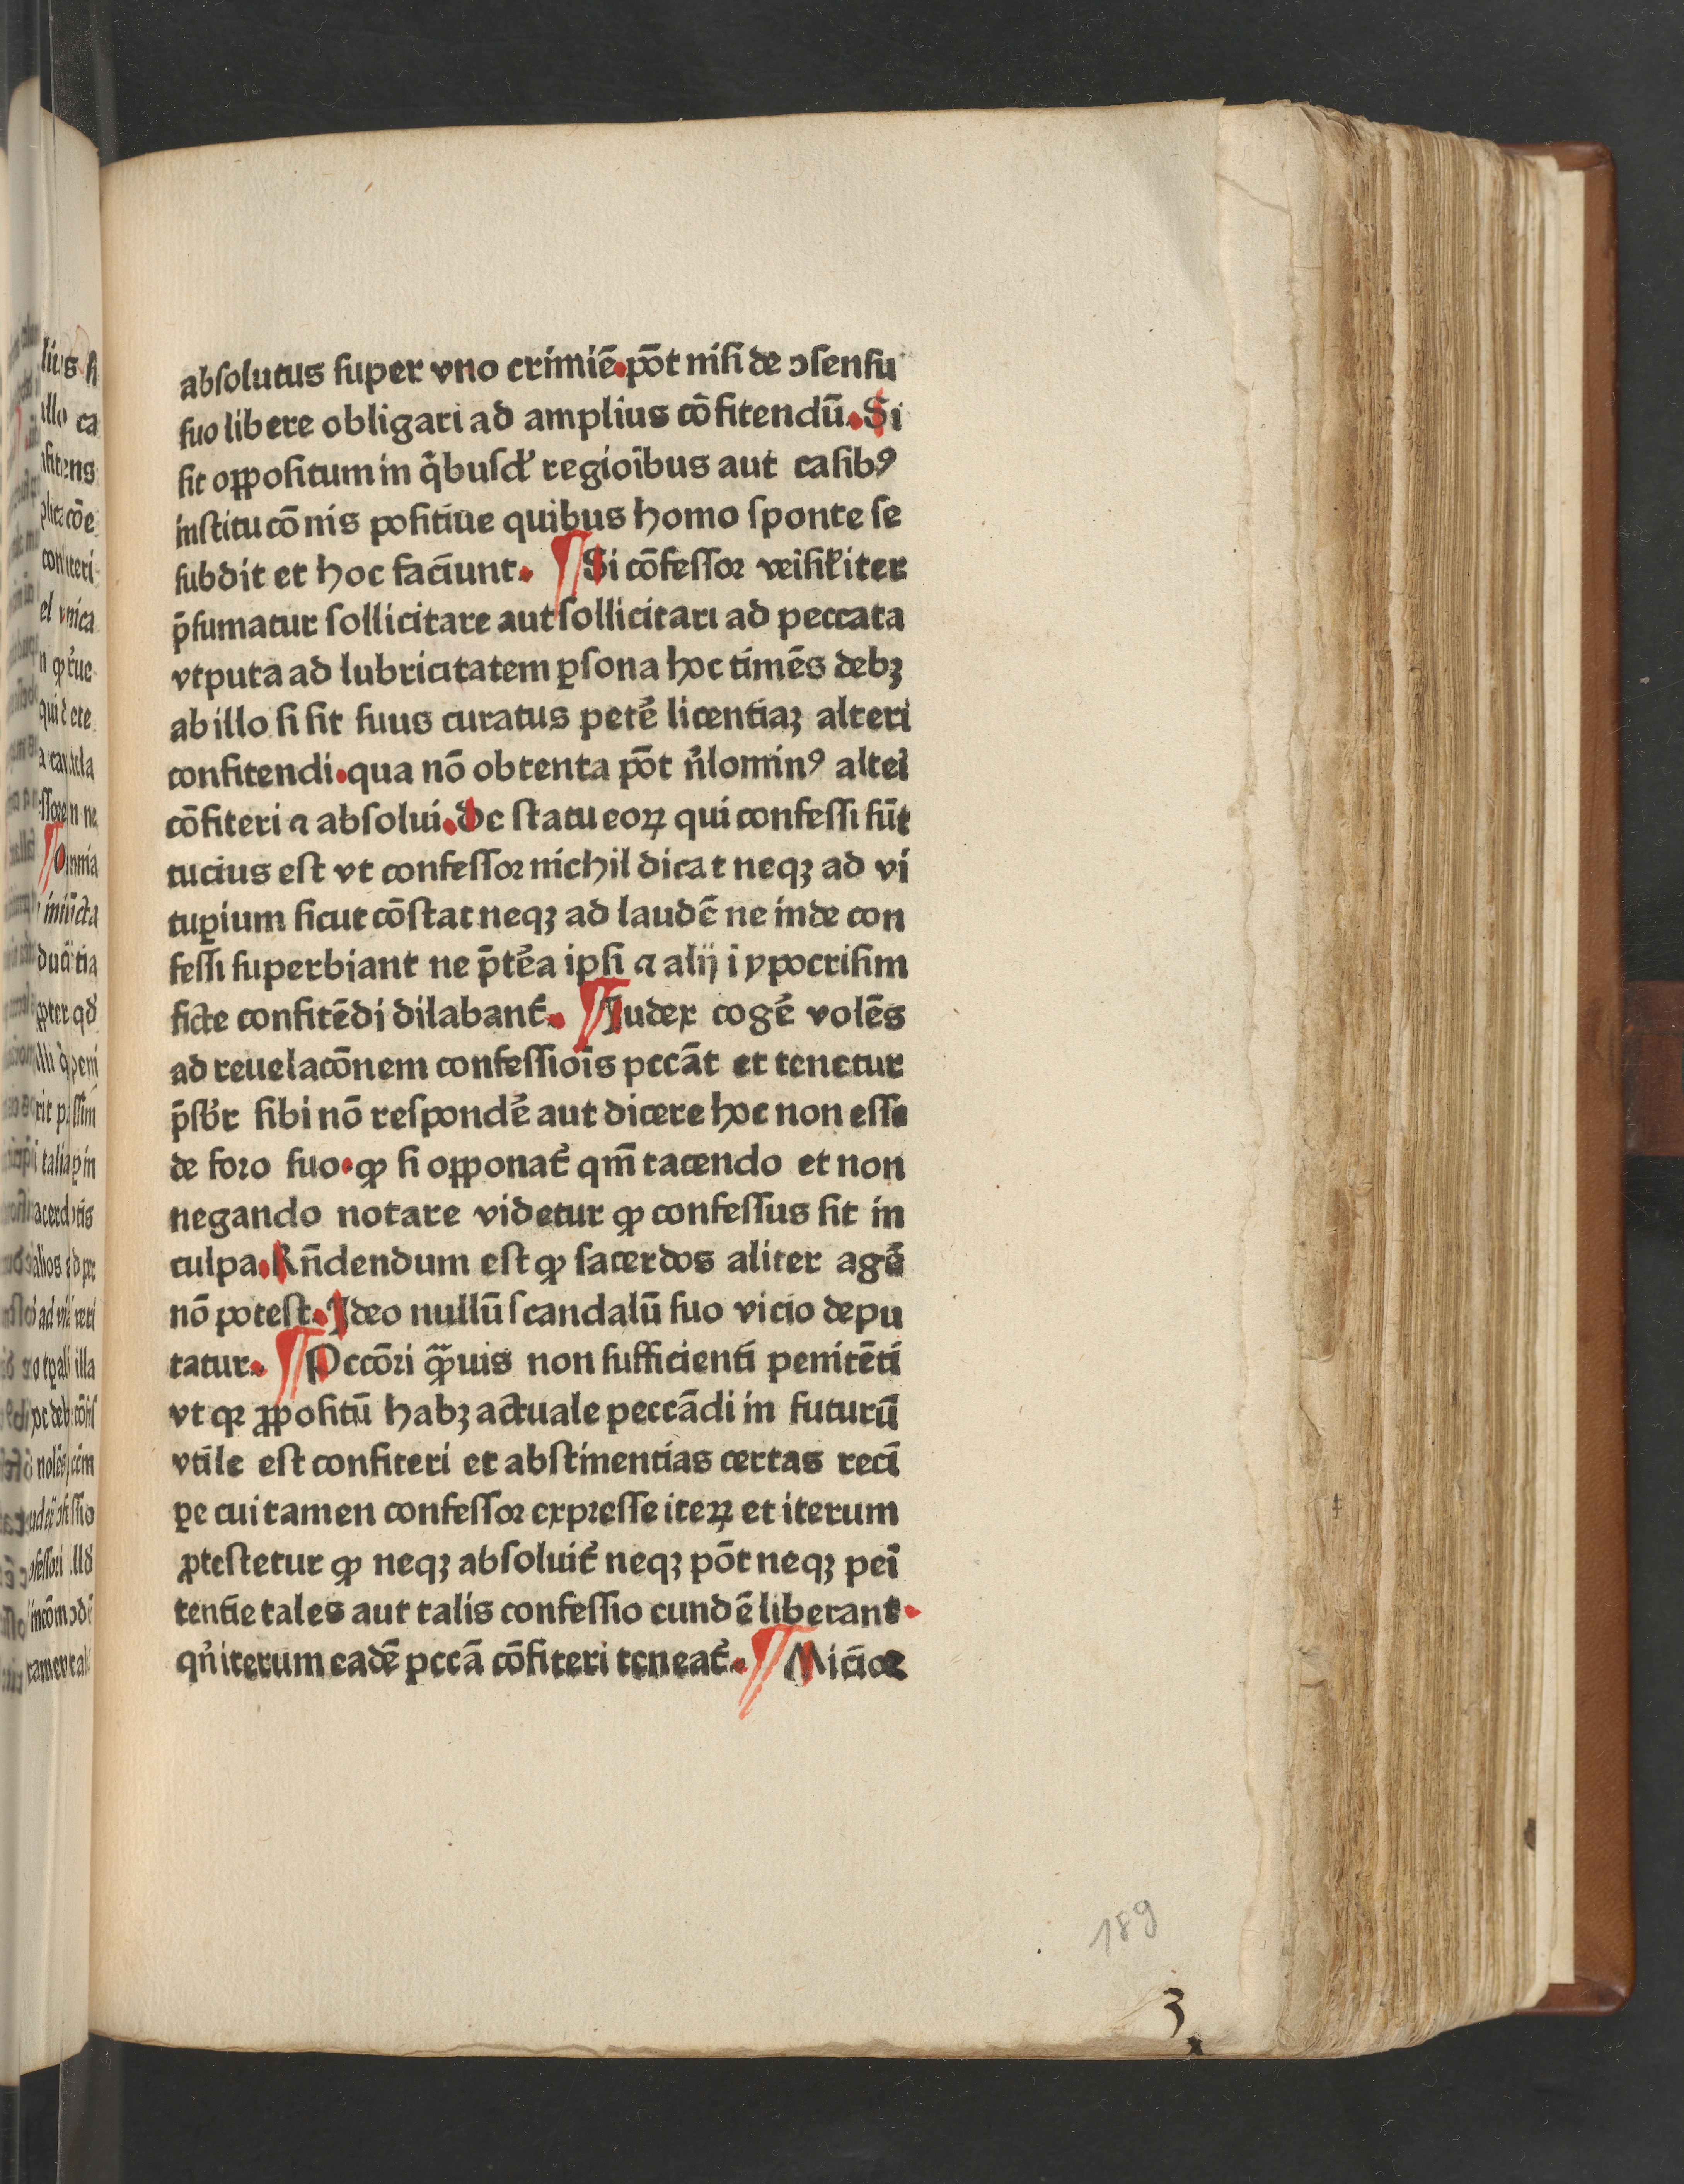 absolutus ſuper vno crimiē.pōt niſi de ↄſenſu
ſuo libere obligari ad amplius cōfitendū.Si
ſit oꝓpoſitum in q̄buſdꝭ regioībus aut caſibꝰ
inſtitucōnis poſitiue quibus homo ſponte ſe
ſubdit et hoc faciunt. ¶Si cōfeſſoꝛ veiſiłiter
p̄ſumatur ſollicitare aut ſollicitari ad peccata
vtputa ad lubricitatem ꝑſona hoc timēs debꝫ
ab illo ſi ſit ſuus curatus petē licentiaꝫ alteri
confitendi.qua nō obtenta pōt n̄lominꝰ alteī
cōfiteri ⁊ absolui.De ſtatu eoꝝ qui confeſſi ſūt
tucius eſt vt confeſſoꝛ nichil dicat neqꝫ ad vi
tuꝑium ſicut cōſtat neqꝫ ad laudē ne inde con
feſſi ſuperbiant ne p̄tēa ipſi ⁊ alij i ypocriſim
ficte confitēdi dilabant̄. ¶Iudex cogē volēs
ad reuelacōnem confeſſiois peccāt et tenetur
p̄ſbr̄ ſibi nō reſpondē aut dicere hoc non eſſe
de foꝛo ſuo.ꝙ ſi oꝓponat̄ qm̄ tacendo et non
negando notare videtur ꝙ confeſſus ſit in
culpa.Rn̄dendum eſt ꝙ ſacerdos aliter agē
nō poteſt.Ideo nullū ſcandalū ſuo vicio depu
tatur. ¶Pccōꝛi qͣ̄uis non ſufficienti penitēti
vt qꝛ ꝓpoſitū habꝫ actuale peccādi in futurū
vtile eſt confiteri et abſtinentias certas reci
ꝑe cui tamen confeſſoꝛ expꝛeſſe iteꝝ et iterum
ꝓteſtetur ꝙ neqꝫ abſoluit̄ neqꝫ pōt neqꝫ peī
tentie tales aut talis confeſſio eundē liberant.
qn̄ iterum eadē pccā cōfiteri teneat̄. ¶Micioꝛ
189
3